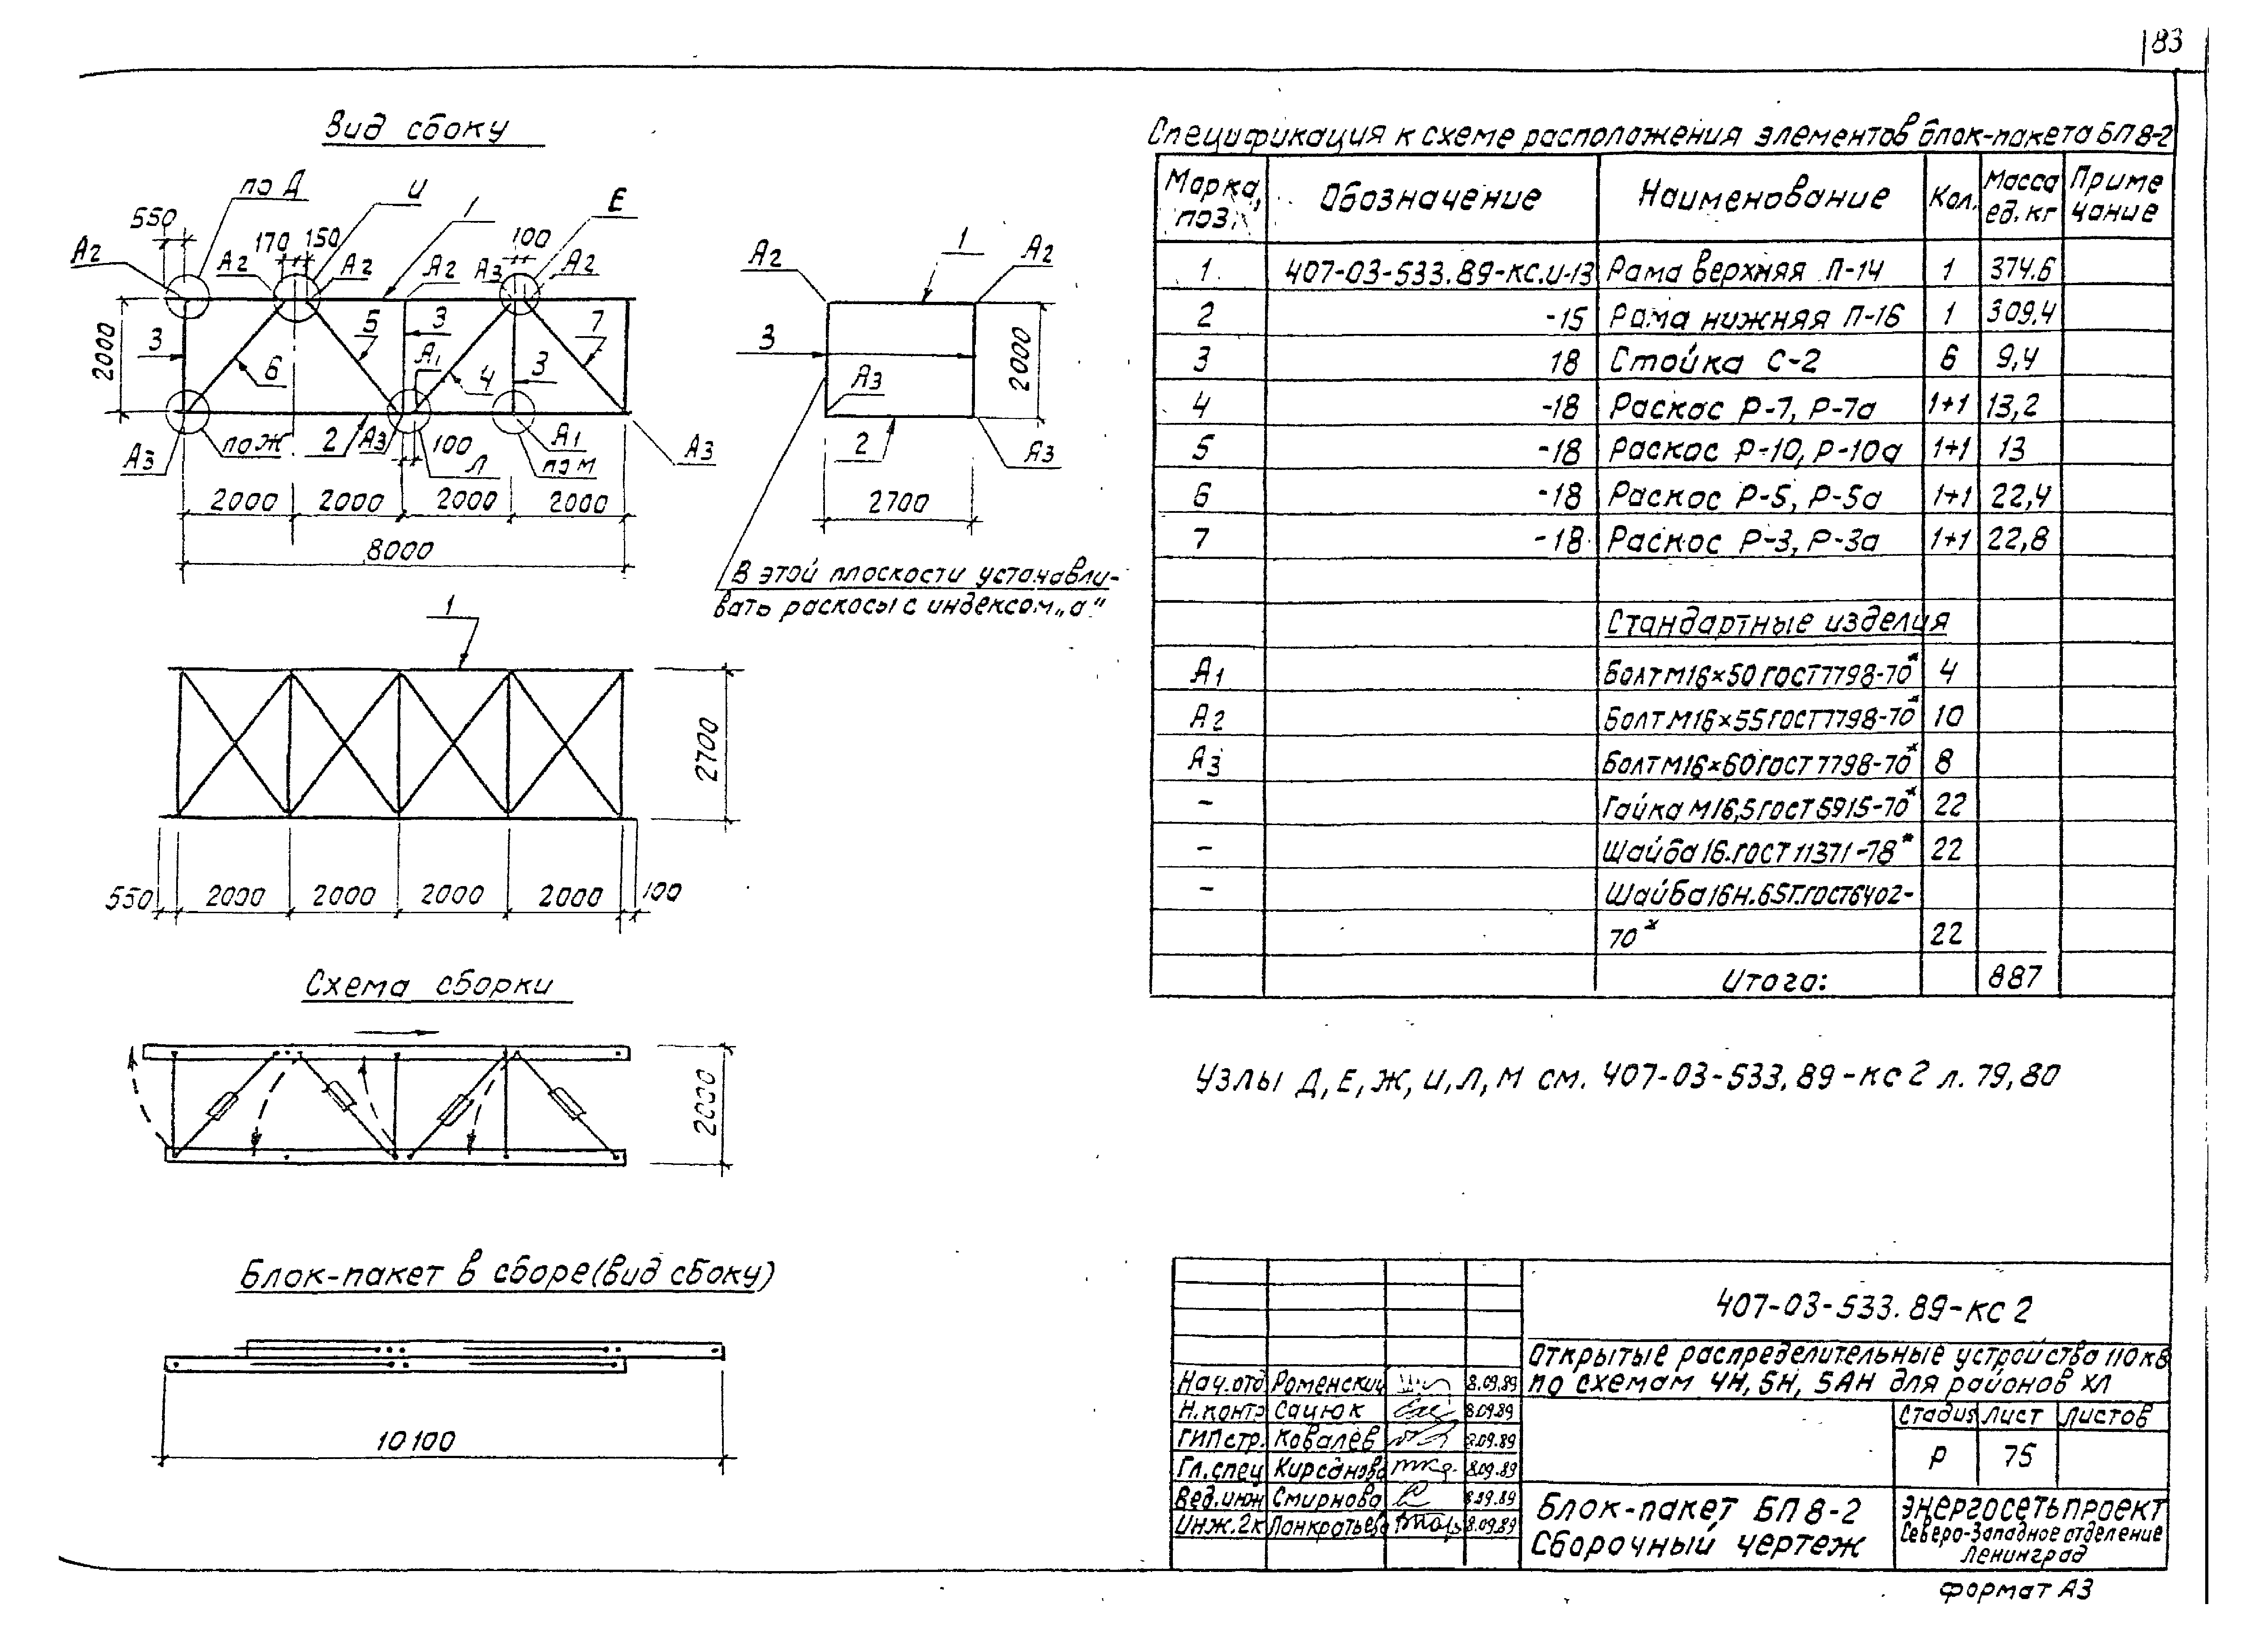 83
Вид сбоку
по Д
И
1
Е
550
170
150
100
А2
А2
А2
А2
А3
А2
2000
3
6
5
3
А1
4
3
7
А3
по Ж
2
А3
100
Л
А1
по М
А3
2000
2000
2000
2000
8000
А2
1
А2
3
А3
2000
2
А3
2700
В этой плоскости устанавли-
вать раскосы с индексом „а“
1
2700
550
2000
2000
2000
2000
100
Схема сборки
2000
Блок-пакет в сборе (вид сбоку)
10100
Спецификация к схеме расположения элементов блок-пакета БП 8-2
Марка, поз. Обозначение Наименование Кол. Масса ед. кг Приме чание
1 407-03-533.89-КС.И-13 Рама верхняя П-14 1 374.6
2 -15 Рама нижняя П-16 1 309,4
3 18 Стойка С-2 6 9,4
4 -18 Раскос Р-7, Р-7а 1+1 13,2
5 -18 Раскос Р-10, Р-10а 1+1 13
6 -18 Раскос Р-5, Р-5а 1+1 22,4
7 -18 Раскос Р-3, Р-3а 1+1 22,8
Стандартные изделия
А1 Болт М16×50 ГОСТ 7798-70* 4
А2 Болт М16×55 ГОСТ 7798-70* 10
А3 Болт М16×60 ГОСТ 7798-70* 8
- Гайка М16,5 ГОСТ 5915-70* 22
- Шайба 16. ГОСТ 11371-78* 22
- Шайба 16Н.65Г. ГОСТ 6402-
70* 22
Итого: 887
Узлы Д, Е, Ж, И, Л, М см. 407-03-533.89-КС 2 л. 79,80
407-03-533.89-КС 2
Открытые распределительные устройства 110 кв
по схемам 4Н, 5Н, 5АН для районов ХЛ
Нач.отд Роменский 8.09.89
Н.контр Сацюк 8.09.89
ГИП стр. Ковалев 8.09.89
Гл.спец Кирсанова 8.09.89
Вед.инж Смирнова 8.09.89
Инж.2к Панкратьева 8.09.89
Стадия Лист Листов
Р 75
Блок-пакет БП 8-2
Сборочный чертеж
Энергосетьпроект
Северо-Западное отделение
Ленинград
формат А3